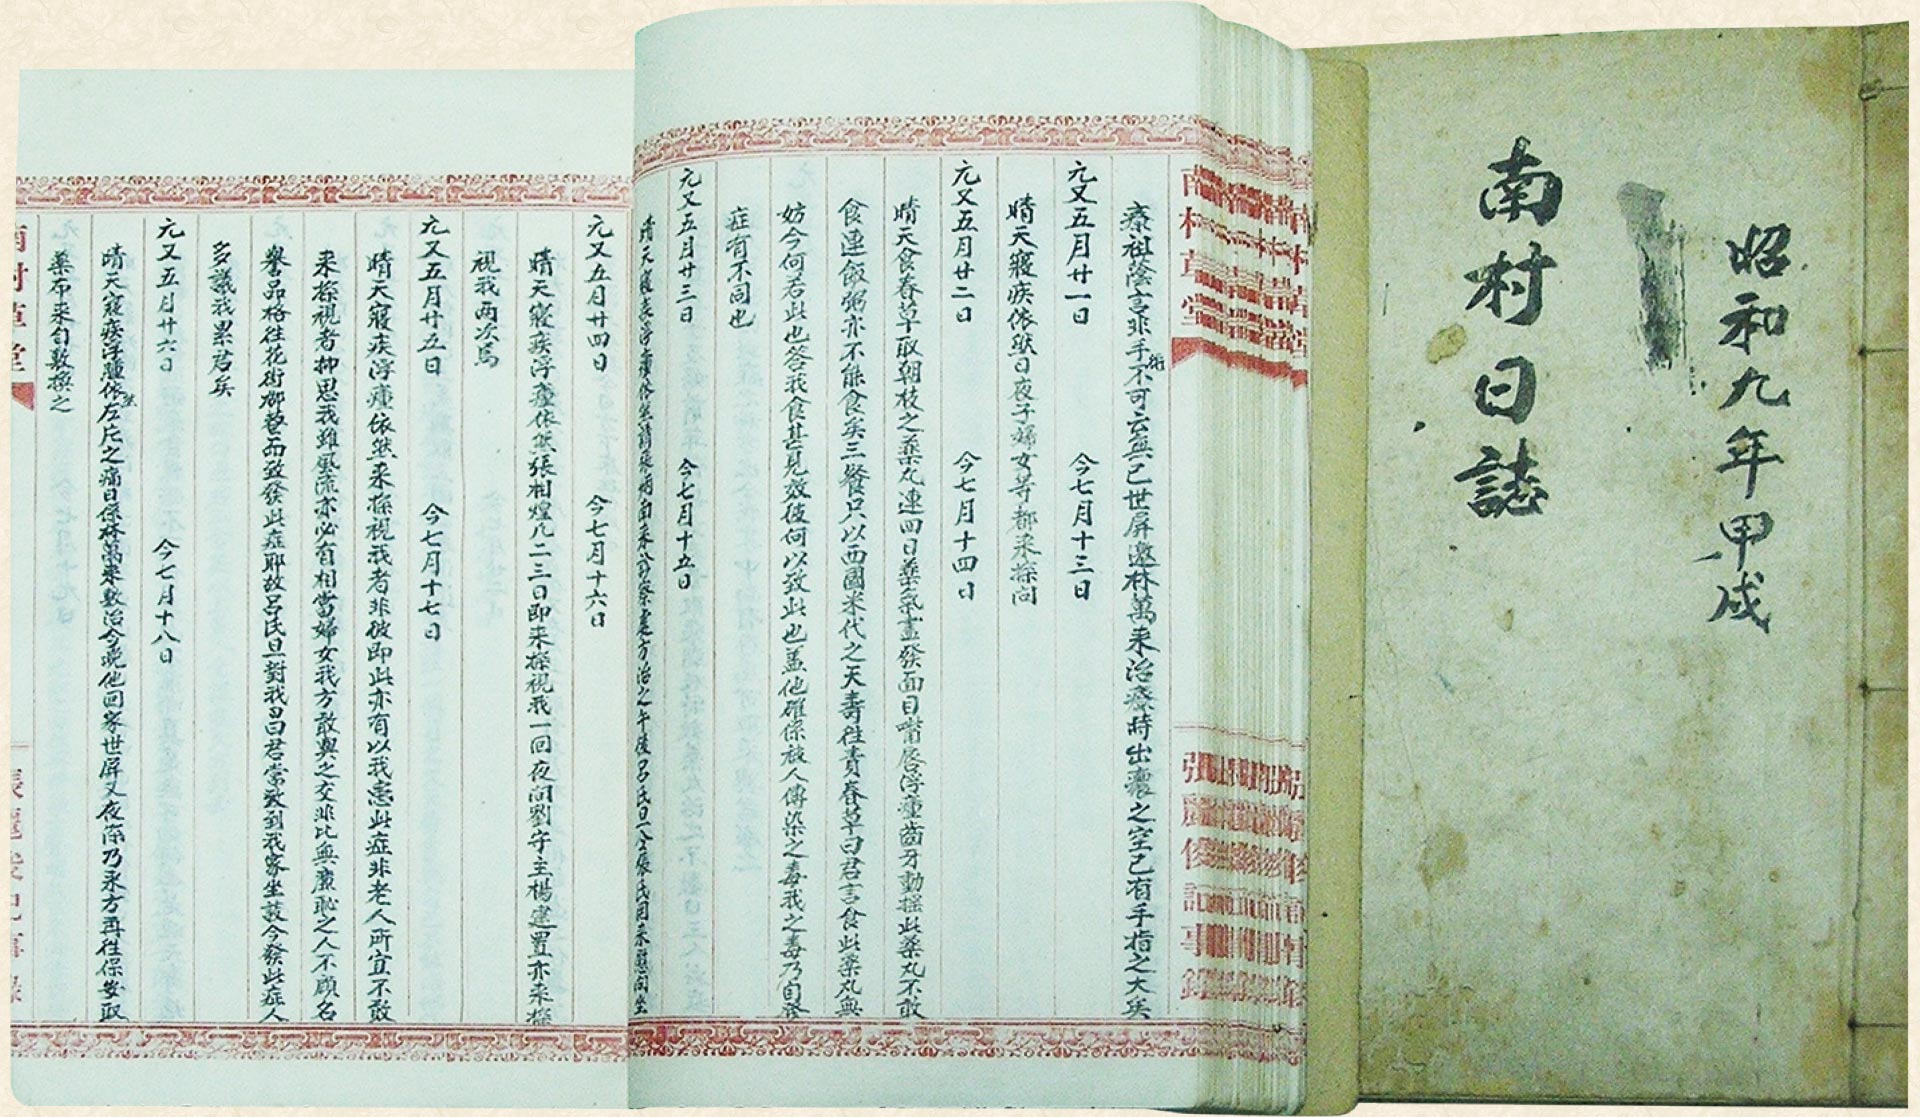 昭和九年甲戌
南村日誌
南村草堂
張麗俊記事錄
泰祖蔭言非手術不可云無已世屏邀林萬來治療時出膿之空已有手指之大矣
元又五月廿一日 今七月十三日
晴天寢疾依然日夜子婦女等都來探問
元又五月廿二日 今七月十四日
晴天食春草取朝枝之藥丸連四日藥氣盡發面目嘴唇浮腫齒牙動搖此藥丸不敢
食連飯粥亦不能食矣三餐只以西國米代之天壽往責春草曰君言食此藥丸無
妨今何若此也答我食甚見效彼何以致此也蓋他確係被人傳染之毒我之毒乃自發
症有不同也
元又五月廿三日 今七月十五日
晴天寢疾浮腫依然請張 來診察處方治之午後呂氏旦 張氏 來慰問坐
元又五月廿四日 今七月十六日
晴天寢疾浮腫依然張相煌凡二三日即來探視我一回夜間劉守主楊建置亦來探
視我兩次焉
元又五月廿五日 今七月十七日
晴天寢疾浮腫依然來探視我者非彼即此亦有以我患此症非老人所宜不敢
來探視者抑思我雖風流亦必有相當婦女我方敢與之交非比無廉恥之人不顧名
譽品格往花街柳巷而致發此症耶故呂氏旦對我曰君常欲到我家坐談今發此症人
多議我累君矣
元又五月廿六日 今七月十八日
晴天寢疾浮腫依然左 之痛日係林萬來敷治今晚他回家世屏又夜 乃承方再往保安取
藥布來自敷換之
南村草堂
張麗俊記事錄